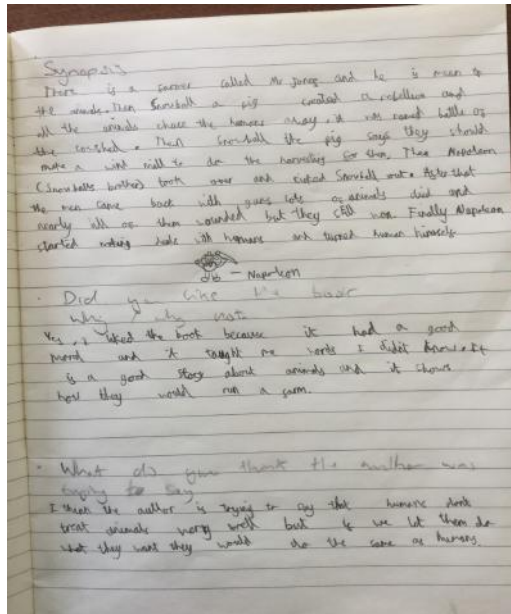 Synopsis
There is a farmer called Mr Jones and he is mean to
the animals. Then Snowball a pig created a rebellion and
all the animals chase the humans away, it was named battle of
the cowshed. Then Snowball the pig says they should
make a wind mill to do the harvesting for them. Then Napoleon
(Snowballs brother) took over and kicked Snowball out. After that
the men came back with guns lots of animals died and
nearly all of them wounded but they still won Finally Napoleon
started making deals with humans and turned human himself.
- Napoleon
Did you like the book
why / why not
Yes, I liked the book because it had a good
moral and it taught me words I didn't know. It
is a good story about animals and it shows
how they would run a farm.
What do you think the author was
trying to say
I think the author is trying to say that humans don't
treat animals very well but if we let them do
what they want they would do the same as humans.